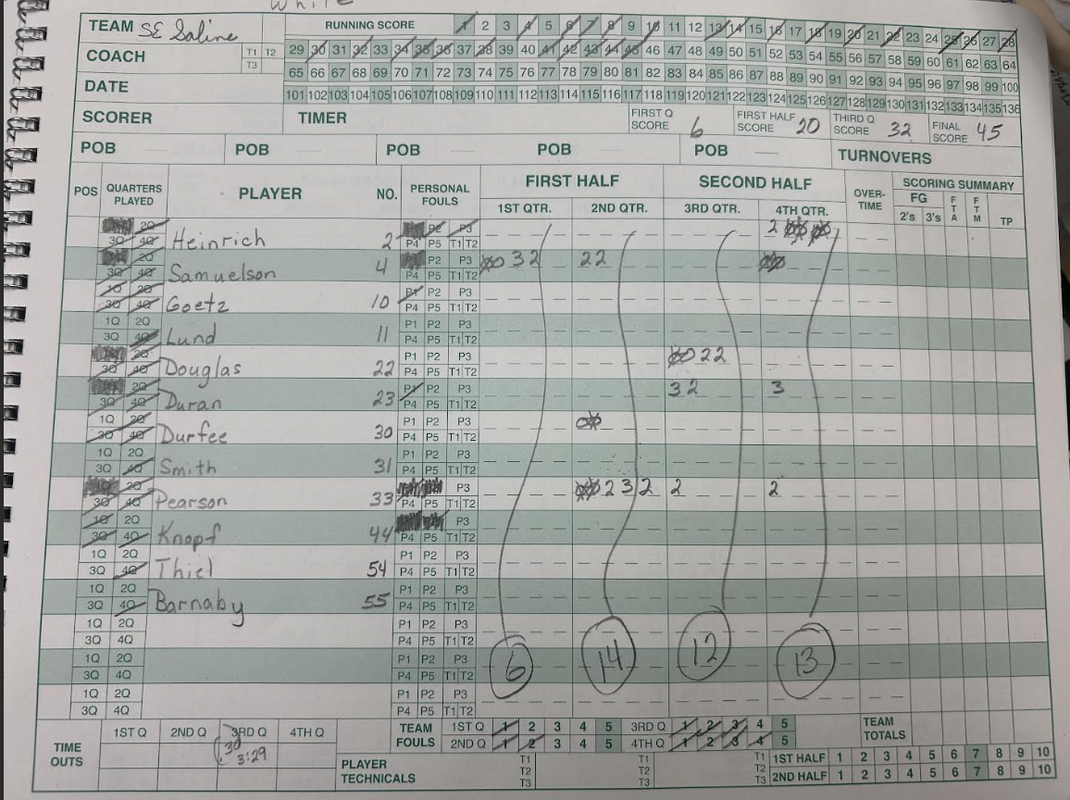 White
TEAM SE Saline RUNNING SCORE 1 2 3 4 5 6 7 8 9 10 11 12 13 14 15 16 17 18 19 20 21 22 23 24 25 26 27 28
COACH T1 T2 T3 29 30 31 32 33 34 35 36 37 38 39 40 41 42 43 44 45 46 47 48 49 50 51 52 53 54 55 56 57 58 59 60 61 62 63 64
65 66 67 68 69 70 71 72 73 74 75 76 77 78 79 80 81 82 83 84 85 86 87 88 89 90 91 92 93 94 95 96 97 98 99 100
DATE 101 102 103 104 105 106 107 108 109 110 111 112 113 114 115 116 117 118 119 120 121 122 123 124 125 126 127 128 129 130 131 132 133 134 135 136
SCORER TIMER FIRST Q SCORE 6 FIRST HALF SCORE 20 THIRD Q SCORE 32 FINAL SCORE 45
POB POB POB POB POB TURNOVERS
POS QUARTERS PLAYED PLAYER NO. PERSONAL FOULS FIRST HALF SECOND HALF OVER-TIME SCORING SUMMARY
1ST QTR. 2ND QTR. 3RD QTR. 4TH QTR. FG 2's 3's FTA FTM TP
2Q P2 P3 2
3Q 4Q Heinrich 2 P4 P5 T1 T2
2Q P2 P3 32 22
3Q 4Q Samuelson 4 P4 P5 T1 T2
1Q 2Q P1 P2 P3
3Q 4Q Goetz 10 P4 P5 T1 T2
1Q 2Q P1 P2 P3
3Q 4Q Lund 11 P4 P5 T1 T2
2Q P1 P2 P3 22
3Q 4Q Douglas 22 P4 P5 T1 T2
2Q P1 P2 P3 32 3
3Q 4Q Duran 23 P4 P5 T1 T2
1Q 2Q P1 P2 P3
3Q 4Q Durfee 30 P4 P5 T1 T2
1Q 2Q P1 P2 P3
3Q 4Q Smith 31 P4 P5 T1 T2
2Q P3 232 2 2
3Q 4Q Pearson 33 P4 P5 T1 T2
1Q 2Q P3
3Q 4Q Knopf 44 P4 P5 T1 T2
1Q 2Q P1 P2 P3
3Q 4Q Thiel 54 P4 P5 T1 T2
1Q 2Q P1 P2 P3
3Q 4Q Barnaby 55 P4 P5 T1 T2
1Q 2Q P1 P2 P3
3Q 4Q P4 P5 T1 T2
1Q 2Q P1 P2 P3 6 14 12 13
3Q 4Q P4 P5 T1 T2
1Q 2Q P1 P2 P3
3Q 4Q P4 P5 T1 T2
TIME OUTS 1ST Q 2ND Q 3RD Q 4TH Q TEAM FOULS 1ST Q 1 2 3 4 5 3RD Q 1 2 3 4 5 TEAM TOTALS
30 3:29 2ND Q 1 2 3 4 5 4TH Q 1 2 3 4 5
PLAYER TECHNICALS T1 T2 T3 T1 T2 T3 T1 T2 T3 1ST HALF 1 2 3 4 5 6 7 8 9 10
2ND HALF 1 2 3 4 5 6 7 8 9 10